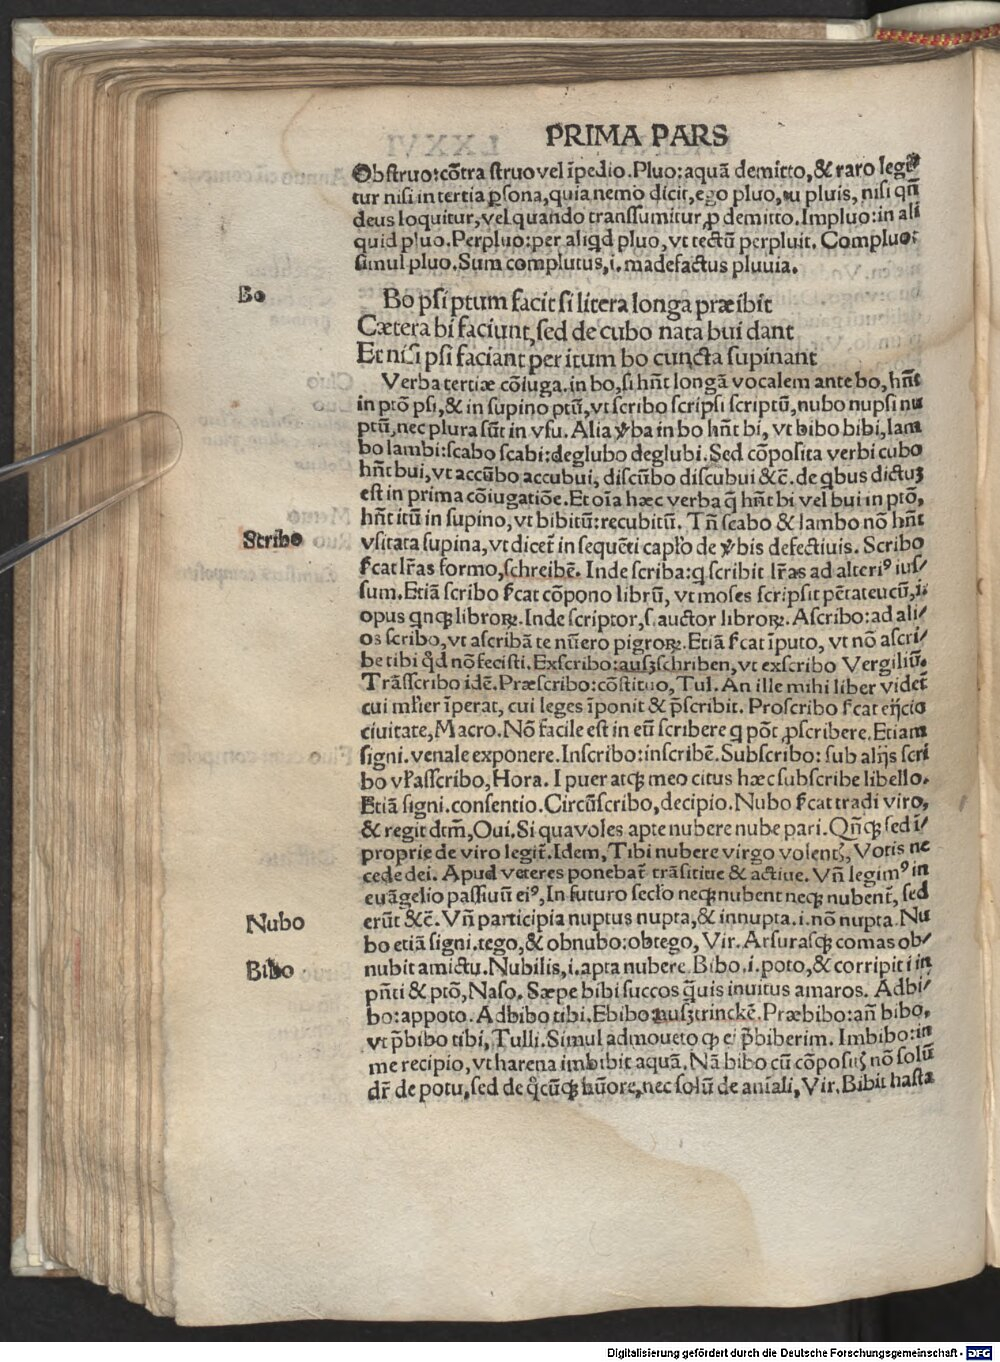 PRIMA PARS
Obstruo: cõtra struo vel ĩpedio. Pluo: aquã demitto, & raro legi
tur nisi in tertia ꝑsona, quia nemo dicit, ego pluo, tu pluis, nisi qñ
deus loquitur, vel quando transsumitur ꝓ demitto. Impluo: in ali
quid pluo. Perpluo: per aliqd pluo, vt tectũ perpluit. Compluo:
simul pluo. Sum complutus, i. madefactus pluuia.
Bo
Bo psi ptum facit si litera longa præibit
Cætera bi faciunt, sed de cubo nata bui dant
Et nisi psi faciant per itum bo cuncta supinant
Verba tertiæ cõiuga. in bo, si hñt longã vocalem ante bo, hñt
in ptõ psi, & in supino ptũ, vt scribo scripsi scriptũ, nubo nupsi nu
ptũ, nec plura sũt in vsu. Alia ꝟba in bo hñt bi, vt bibo bibi, lam
bo lambi: scabo scabi: deglubo deglubi. Sed cõposita verbi cubo
hñt bui, vt accũbo accubui, discũbo discubui &c̃. de qbus dictuꝫ
est in prima cõiugatiõe. Et oĩa hæc verba q̃ hñt bi vel bui in ptõ,
hñt itũ in supino, vt bibitũ: recubitũ. Tñ scabo & lambo nõ hñt
Scribo
vsitata supina, vt dicet̃ in sequẽti caplo de ꝟbis defectiuis. Scribo
scat lr̃as formo, schreibẽ. Inde scriba: q scribit lr̃as ad alteriꝰ ius/
sum. Etiã scribo scat cõpono librũ, vt moses scripsit pẽtateucũ, i.
opus qnqꝫ libroꝝ. Inde scriptor, s. auctor libroꝝ. Ascribo: ad ali/
os scribo, vt ascribã te nũero pigroꝝ. Etiã scat ĩputo, vt nõ ascri/
be tibi qd nõ fecisti. Exscribo: auszschriben, vt exscribo Vergiliũ.
Trãsscribo idẽ. Præscribo: cõstituo, Tul. An ille mihi liber videt̃
cui mlier ĩperat, cui leges ĩponit & p̃scribit. Proscribo scat eijcio
ciuitate, Macro. Nõ facile est in eũ scribere q põt ꝓscribere. Etiam
signi. venale exponere. Inscribo: inscribẽ. Subscribo: sub alijs scri
bo vl asscribo, Hora. I puer atqꝫ meo citus hæc subscribe libello.
Etiã signi. consentio. Circũscribo, decipio. Nubo scat tradi viro,
& regit dtm̃, Oui. Si qua voles apte nubere nube pari. Qñqꝫ sed ĩ/
proprie de viro legit̃. Idem, Tibi nubere virgo volentꝫ, Votis ne
cede dei. Apud veteres ponebat̃ trãsitiue & actiue. Vñ legimꝰ in
euãgelio passiuũ eiꝰ, In futuro seclo neqꝫ nubent neqꝫ nubent̃, sed
Nubo
erũt &c̃. Vñ participia nuptus nupta, & innupta. i. nõ nupta. Nu
bo etiã signi. tego, & obnubo: obtego, Vir. Arsurasqꝫ comas ob/
Bibo
nubit amictu. Nubilis, i. apta nubere. Bibo. i. poto, & corripit i in
pñti & ptõ, Naso. Sæpe bibi succos q̃uis inuitus amaros. Adbi/
bo: appoto. Adbibo tibi. Ebibo: ausztrinckẽ. Præbibo: añ bibo,
vt p̃bibo tibi, Tulli. Simul admoueto qꝫ ei p̃biberim. Imbibo: in
me recipio, vt harena imbibit aquã. Nã bibo cũ cõpositꝫ nõ solũ
dr̃ de potu, sed de qcũqꝫ hũore, nec solũ de aniali, Vir. Bibit hasta
Digitalisierung gefördert durch die Deutsche Forschungsgemeinschaft - DFG